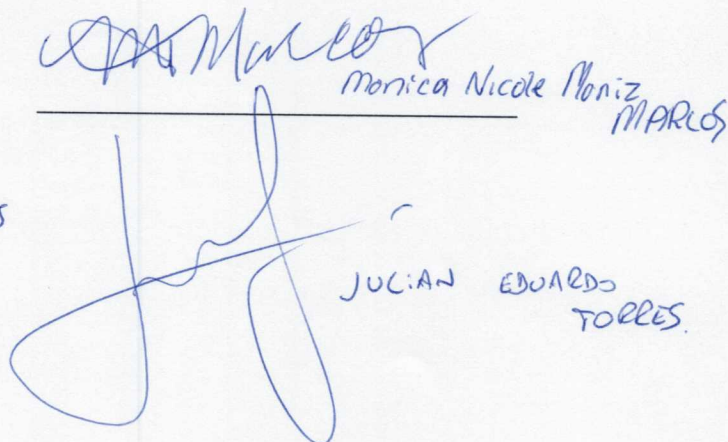 Marcos
Monica Nicole Moniz
MARCOS
JULIAN EDUARDO
TORRES.